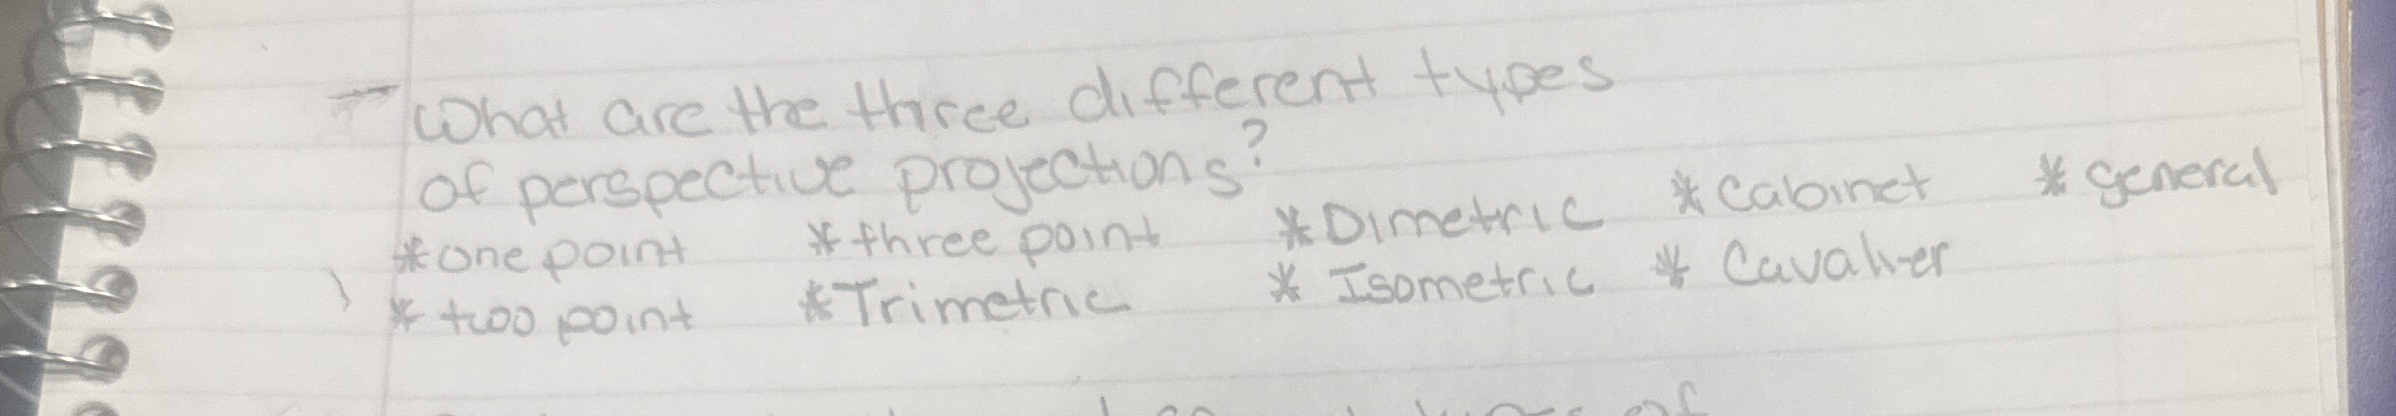 - What are the three different types
of perspective projections?
* one point * three point * Dimetric * Cabinet * general
* two point * Trimetric * Isometric * Cavalier